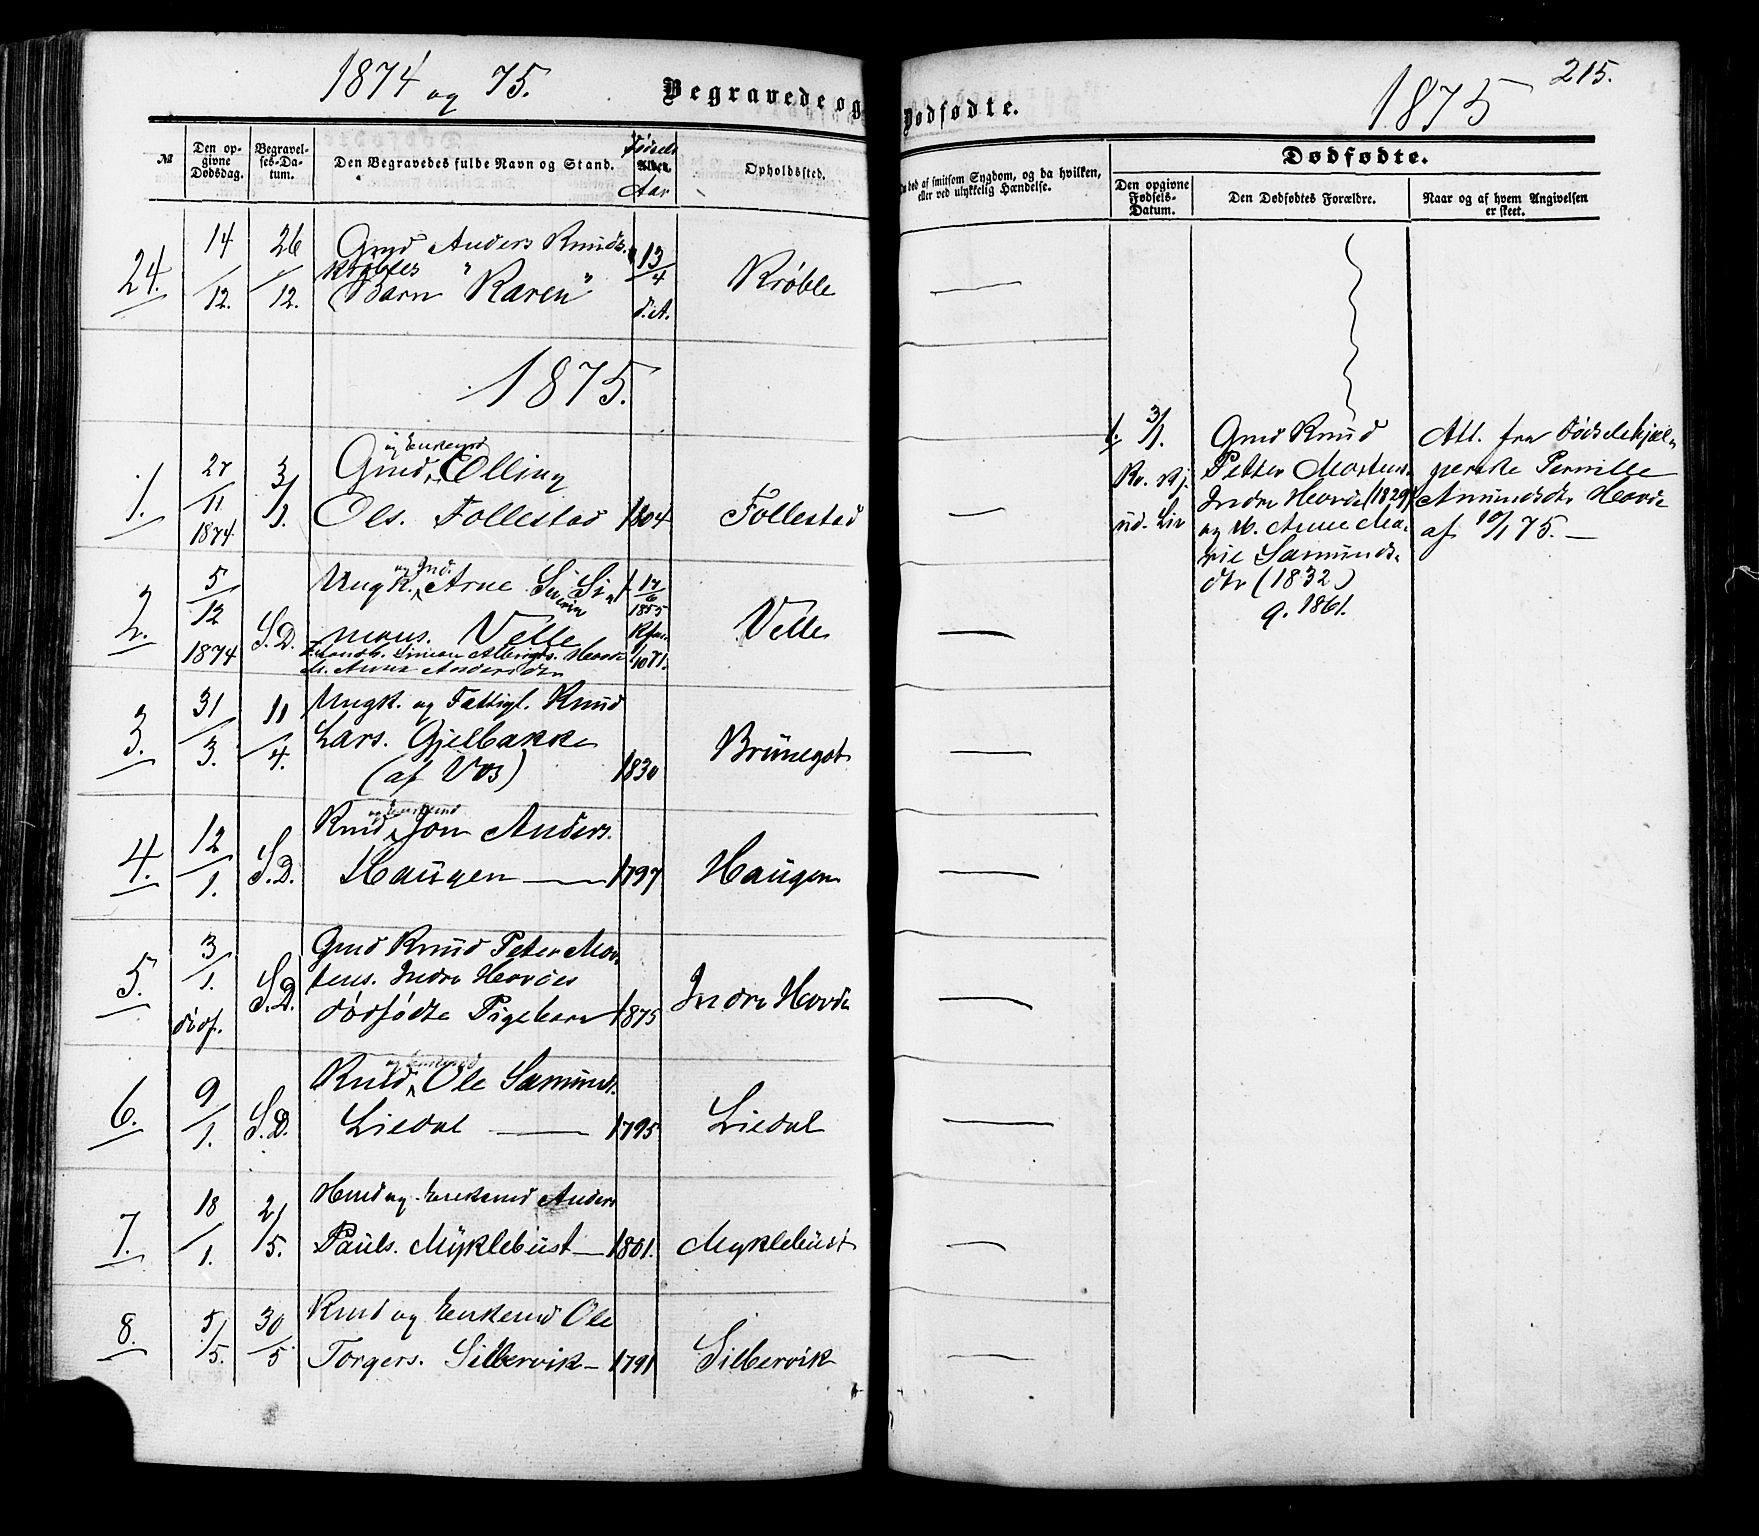 1874 og 75.
Begravede og Dødfødte.
1875
215.
№
Den opgivne Dødsdag.
Begravelses-Datum.
Den Begravedes fulde Navn og Stand.
Fødsels Alder. Aar
Opholdssted.
død af smitsom Sygdom, og da hvilken, eller ved ulykkelig Hændelse.
Dødfødte.
Den opgivne Fødsels-Datum.
Den Dødfødtes Forældre.
Naar og af hvem Angivelsen er skeet.
24. 14/12. 26/12. Gmd Anders Knuds. 13/4
Krøbles
Barn "Karen" d. A. Krøble —
1875.
1. 27/11 1874 3/1. Gmd og Enkemd Elling
Ols. Follestad 1804 Follestad —
2. 5/12 1874 S.D. Ungk. og Ind. Arne Severin Si- 17/6 1855
mons. Velle Velle —
M. Anna Andersdtr
3. 31/3. 11/4. Ungk. og Fattigl. Knud
Lars. Gjelbakke
(af Vos) 1830 Brünegot —
4. 12/1. S.D. Kmd og Enkemd Jon Anders.
Haugen — 1797 Haugen —
5. 3/1. dødf. S.D. Gmd Knud Peter Mor-
tens. Indre Hovdes
dødfødte Pigebarn 1875 Indre Hovde —
6. 9/1. S.D. Kmd og Enkemd Ole Samunds.
Liedal — 1795 Liedal —
7. 18/1. 2/5. Hmd og Enkemd Anders
Pauls. Myklebust — 1801. Myklebust —
8. 5/5. 30/5 Kmd og Enkemd Ole
Torgers. Silbervik — 1791 Silbervik —
1. 3/1.
Kv. Kj.
ud. Liv
Gmd Knud
Petter Mortens.
Indre Hovde (1829)
og H. Anne Ma-
rie Samunds-
dtr (1832)
g. 1861.
Att. fra Fødselshjæl-
perske Pernille
Amundsdtr Hovde
af 10/1 75. —